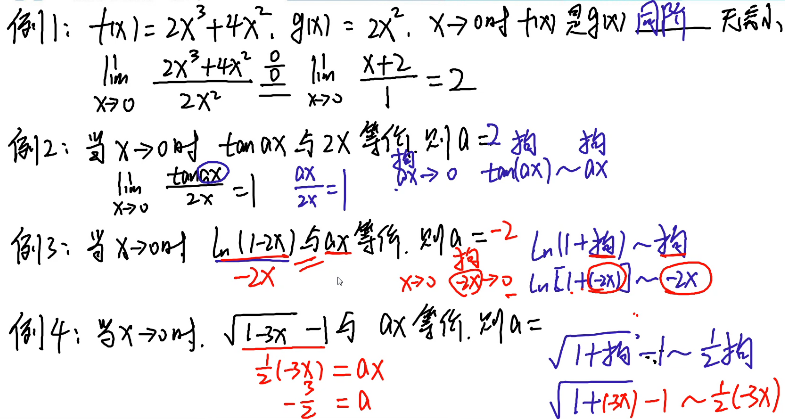 例1: f(x)=2x³+4x², g(x)=2x², x→0时 f(x)是g(x) 同阶 无穷小
lim x→0 (2x³+4x²)/(2x²) =(0/0)= lim x→0 (x+2)/1 = 2
例2: 当x→0时 tan ax 与 2x 等价, 则 a=2 狗 狗
lim x→0 (tan ax)/(2x) = 1 ax/2x = 1 狗 ax→0 tan(ax)~ax
例3: 当x→0时 ln(1-2x) 与 ax 等价, 则 a=-2 ln(1+狗)~狗
-2x x→0 狗 -2x→0 ln[1+(-2x)]~-2x
例4: 当x→0时, √(1-3x) -1 与 ax 等价, 则 a=
√(1+狗) -1 ~ ½狗
½(-3x) = ax
-3/2 = a √(1+(-3x)) -1 ~ ½(-3x)